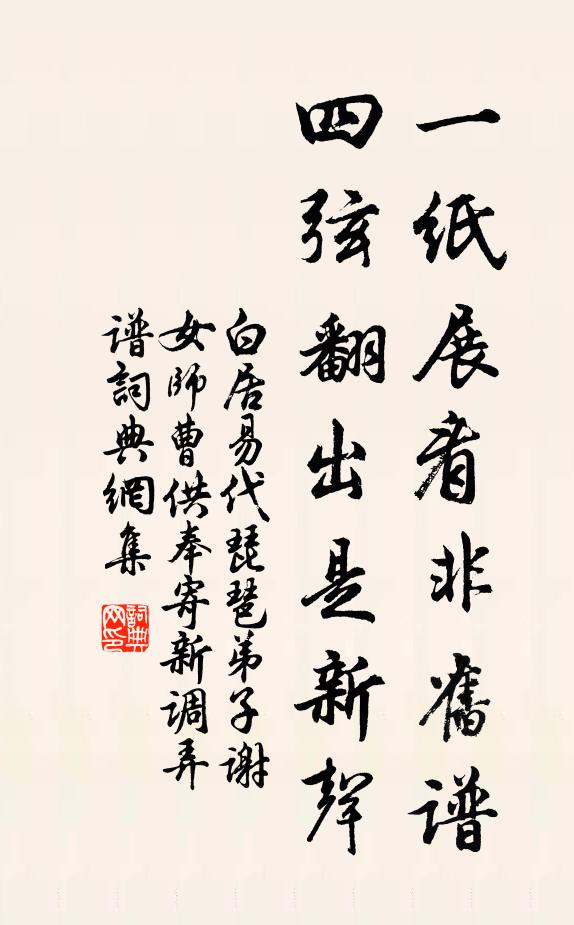 一紙展看非舊譜
四弦翻出是新聲
白居易代琵琶弟子谢
女師曹供奉寄新调弄
谱詞典網集
詞典网印